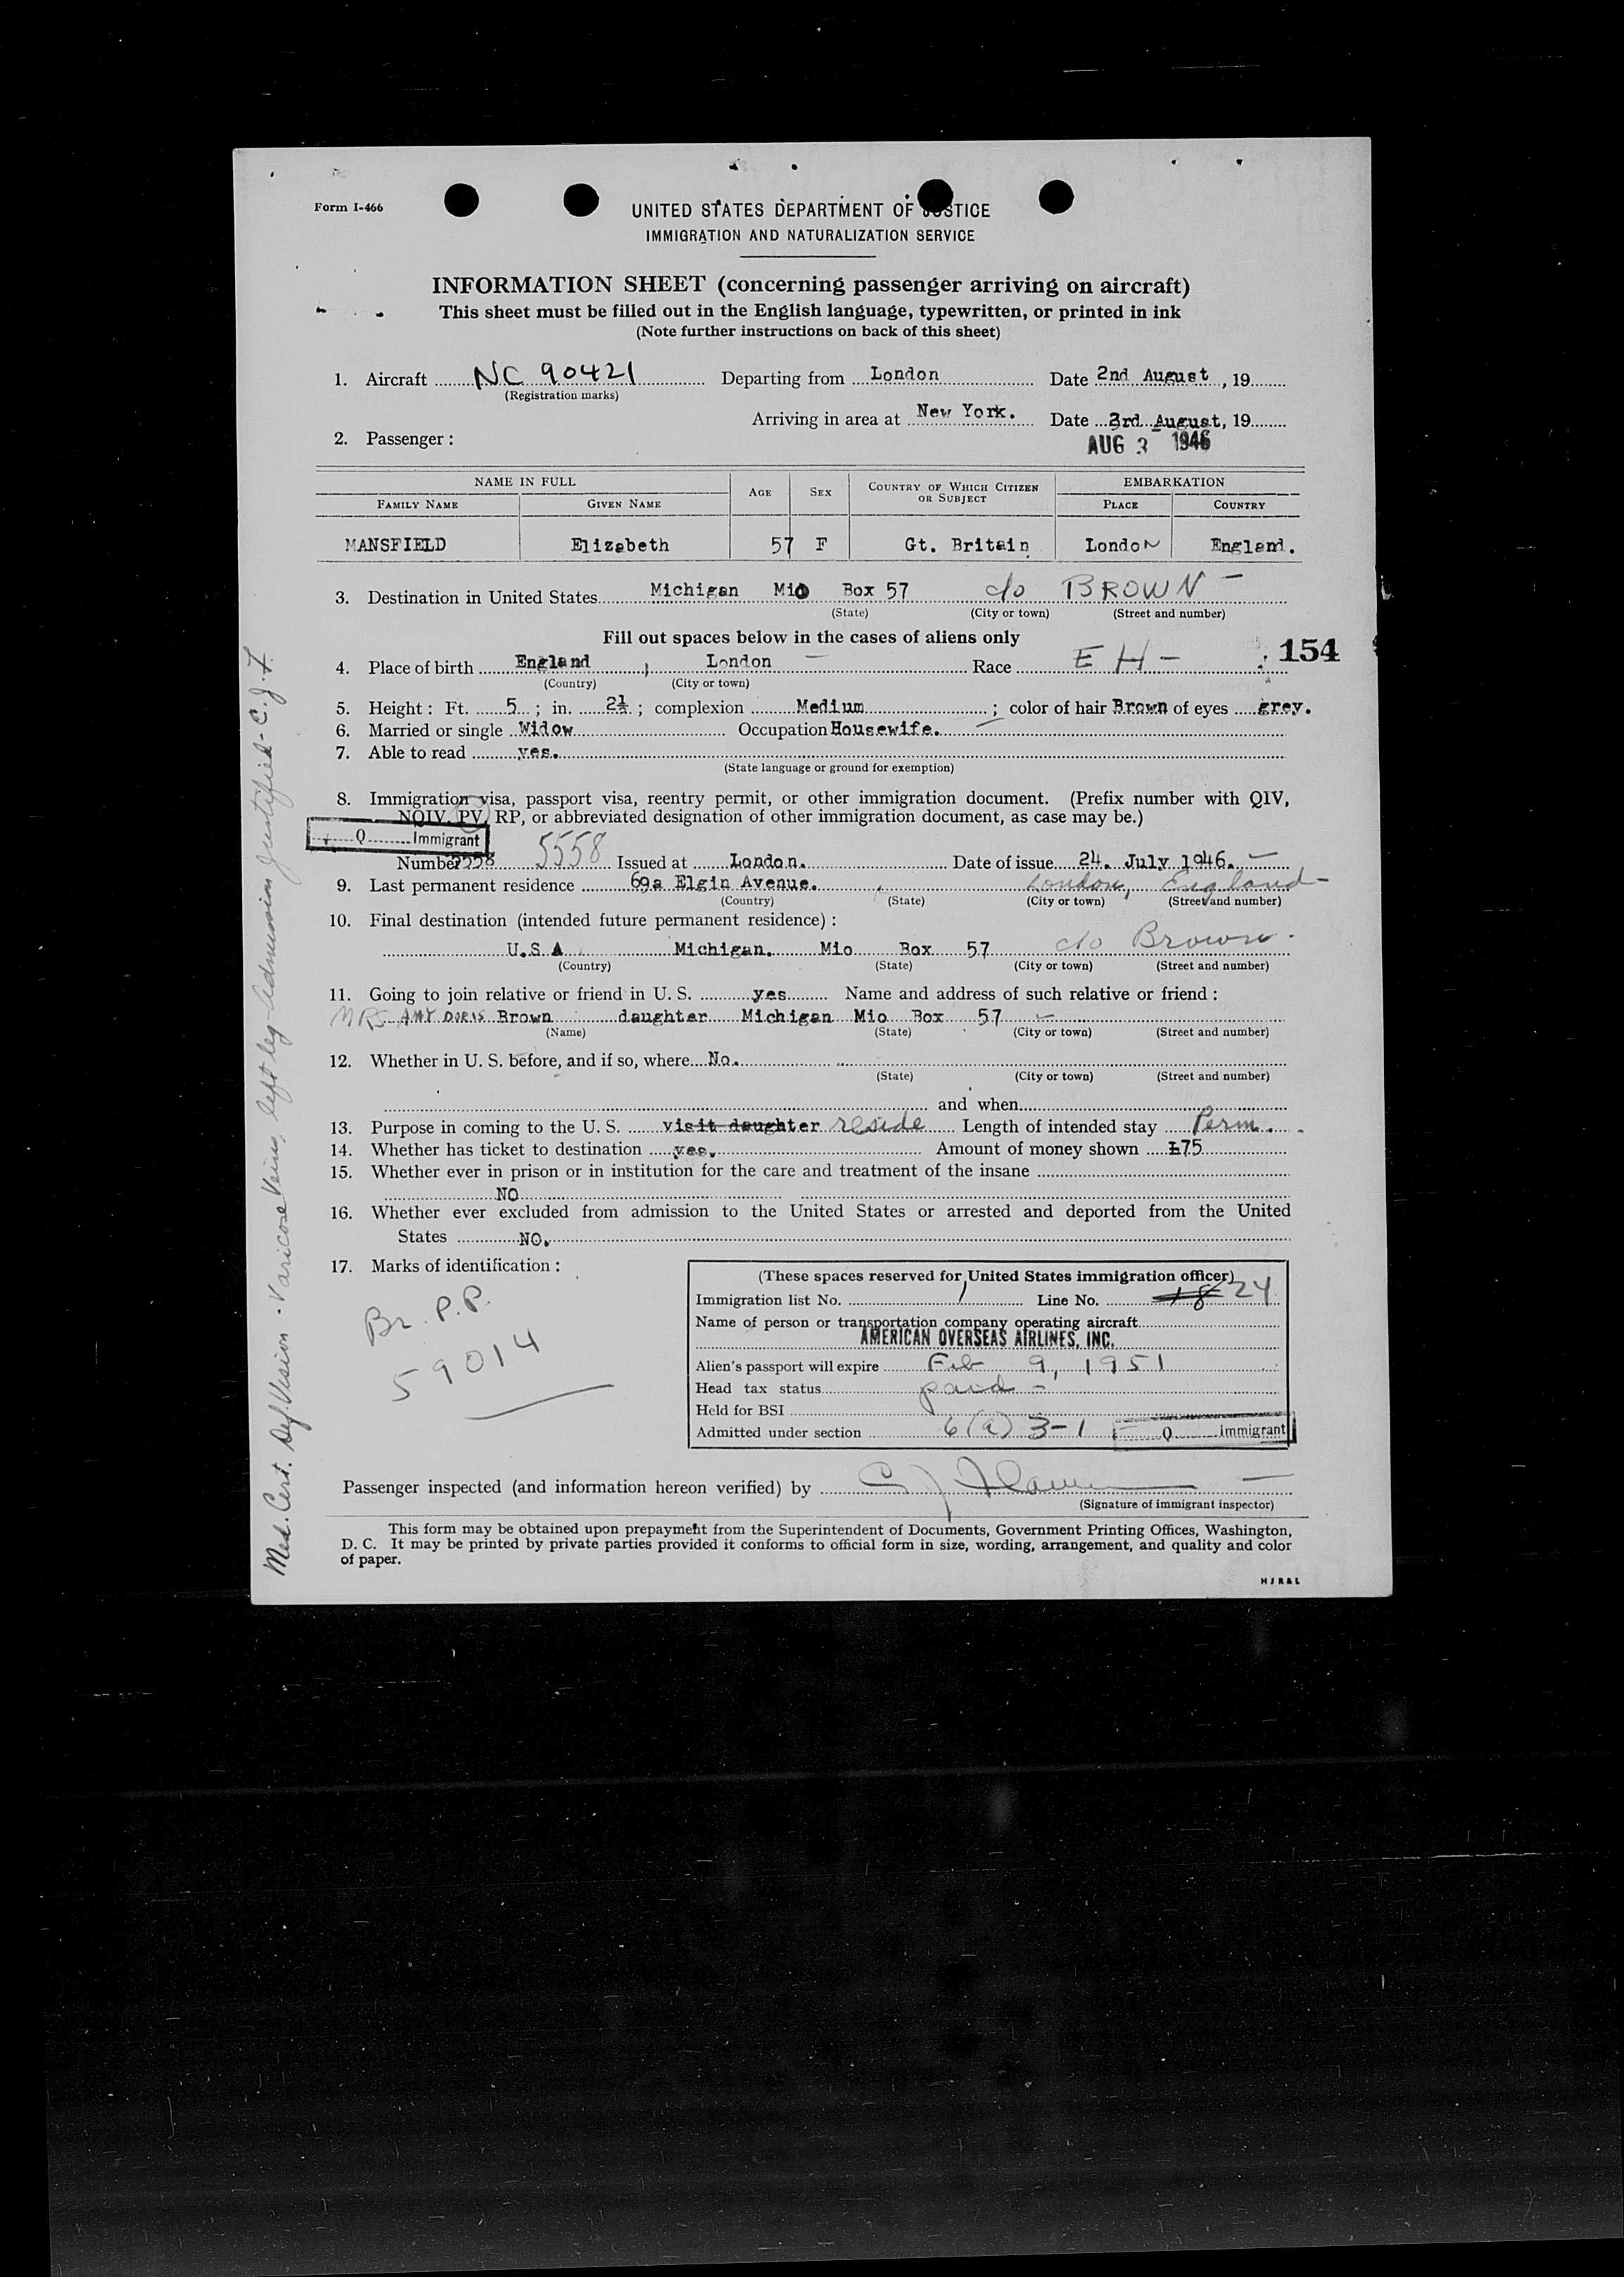 Form I-466
UNITED STATES DEPARTMENT OF JUSTICE
IMMIGRATION AND NATURALIZATION SERVICE
INFORMATION SHEET (concerning passenger arriving on aircraft)
This sheet must be filled out in the English language, typewritten, or printed in ink
(Note further instructions on back of this sheet)
1. Aircraft NC 90421 Departing from London Date 2nd August, 19
(Registration marks)
Arriving in area at New York. Date 3rd August, 19
2. Passenger:
AUG 3 1946
NAME IN FULL AGE SEX COUNTRY OF WHICH CITIZEN OR SUBJECT EMBARKATION
FAMILY NAME GIVEN NAME PLACE COUNTRY
MANSFIELD Elizabeth 57 F Gt. Britain London England.
3. Destination in United States Michigan Mio Box 57 c/o BROWN -
(State) (City or town) (Street and number)
Fill out spaces below in the cases of aliens only
154
4. Place of birth England, London Race E H -
(Country) (City or town)
5. Height: Ft. 5; in. 2½; complexion Medium; color of hair Brown of eyes grey.
6. Married or single Widow Occupation Housewife.
7. Able to read yes.
(State language or ground for exemption)
8. Immigration visa, passport visa, reentry permit, or other immigration document. (Prefix number with QIV,
NQIV, PV, RP, or abbreviated designation of other immigration document, as case may be.)
Q Immigrant
Number 5558 5558 Issued at London. Date of issue 24. July 1946.
9. Last permanent residence 69a Elgin Avenue. London, England
(Country) (State) (City or town) (Street and number)
10. Final destination (intended future permanent residence):
U.S.A. Michigan. Mio Box 57 c/o Brown.
(Country) (State) (City or town) (Street and number)
11. Going to join relative or friend in U. S. yes Name and address of such relative or friend:
MRS AMY DORIS Brown daughter Michigan Mio Box 57
(Name) (State) (City or town) (Street and number)
12. Whether in U. S. before, and if so, where No.
(State) (City or town) (Street and number)
and when
13. Purpose in coming to the U. S. visit daughter reside Length of intended stay Perm.
14. Whether has ticket to destination yes. Amount of money shown £75
15. Whether ever in prison or in institution for the care and treatment of the insane
NO
16. Whether ever excluded from admission to the United States or arrested and deported from the United
States NO.
17. Marks of identification:
Br. P.P.
59014
(These spaces reserved for United States immigration officer)
Immigration list No. 1 Line No. 18 24
Name of person or transportation company operating aircraft
AMERICAN OVERSEAS AIRLINES, INC.
Alien's passport will expire Feb 9, 1951
Head tax status paid -
Held for BSI
Admitted under section 6(a) 3-1 Q Immigrant
Passenger inspected (and information hereon verified) by
(Signature of immigrant inspector)
This form may be obtained upon prepayment from the Superintendent of Documents, Government Printing Offices, Washington,
D. C. It may be printed by private parties provided it conforms to official form in size, wording, arrangement, and quality and color
of paper.
H J R & L
Med. Cert. Def Vision - Varicose Veins, left leg - Admission justified - C. J. F.